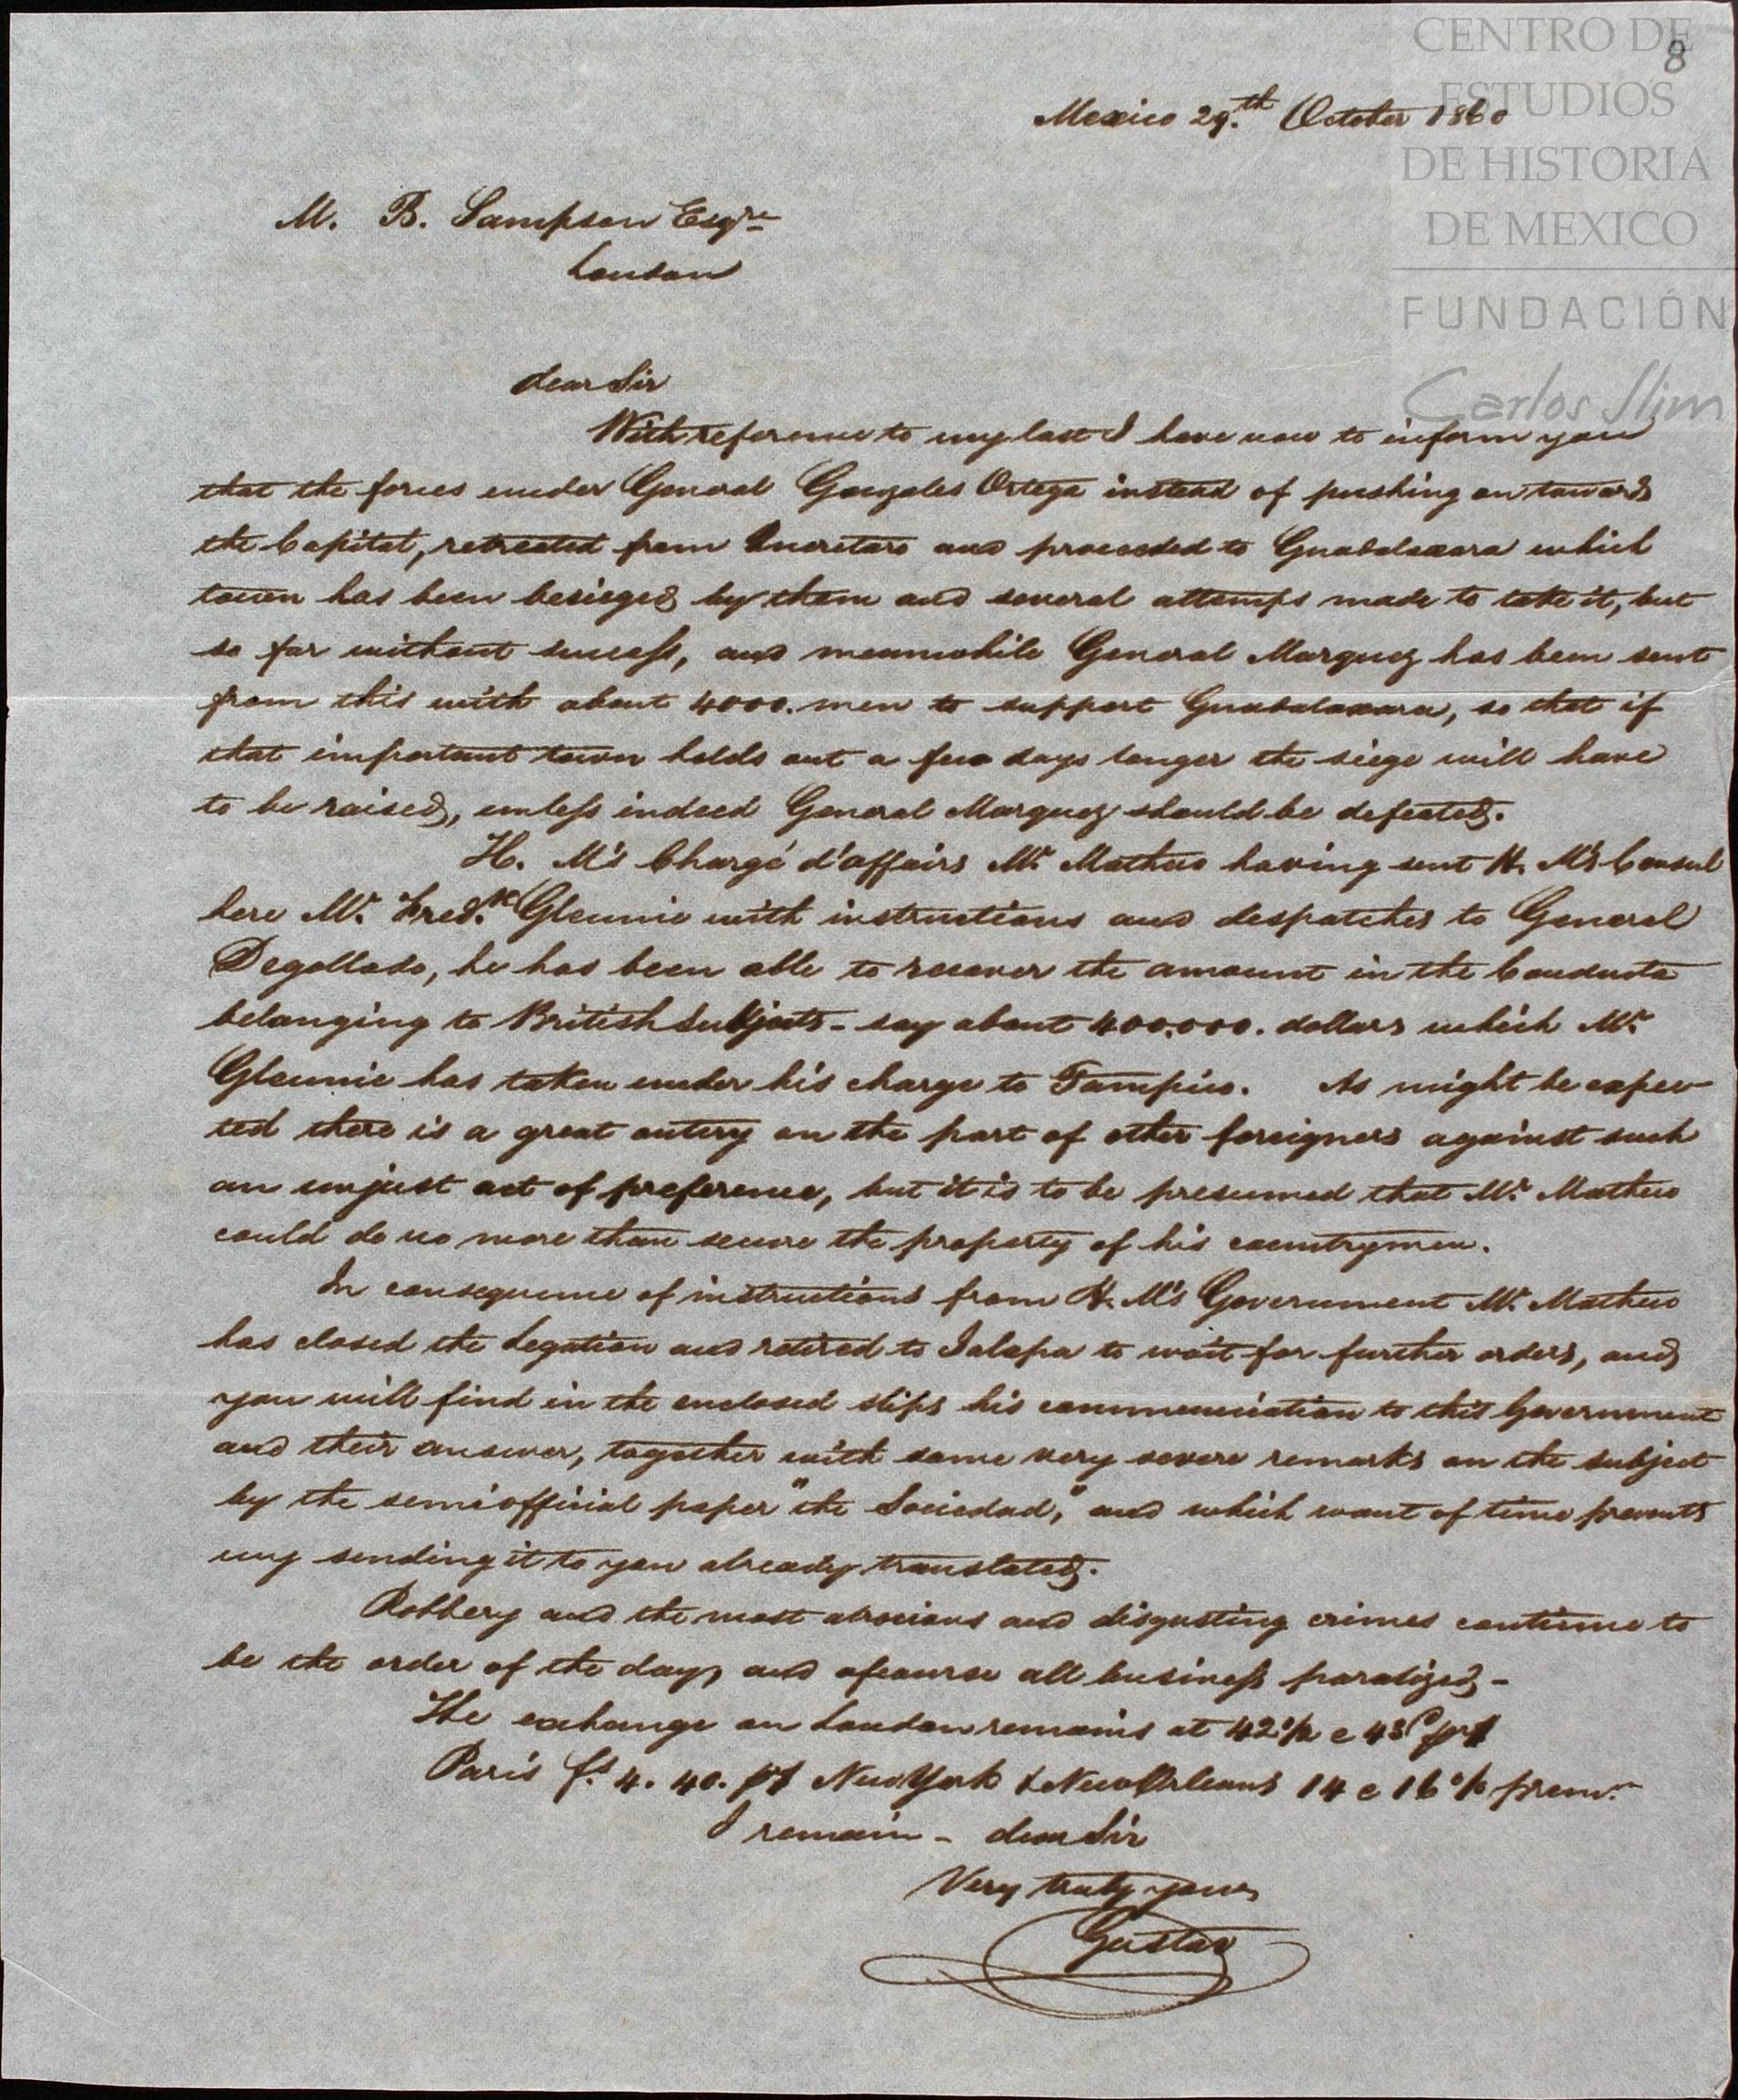 CENTRO DE
ESTUDIOS
DE HISTORIA
DE MEXICO
FUNDACIÓN
Carlos Slim
8
Mexico 29.th October 1860
M. B. Sampson Esqre
London
dear Sir
With reference to my last I have now to inform you
that the forces under General Gonzales Ortega instead of pushing on towards
the Capital, retreated from Queretaro and proceeded to Guadalaxara which
town has been besieged by them and several attemps made to take it, but
so far without success, and meanwhile General Marquez has been sent
from this with about 4000. men to support Guadalaxara, so that if
that important town holds out a few days longer the siege will have
to be raised, unless indeed General Marquez should be defeated.
H. M's Chargé d'affairs Mr. Mathew having sent H. M's Consul
here Mr. Fredk. Glennie with instructions and despatches to General
Degollado, he has been able to recover the amount in the Conducta
belonging to British Subjects - say about 400.000. dollars which Mr.
Glennie has taken under his charge to Tampico. As might be expec-
ted there is a great outcry on the part of other foreigners against such
an unjust act of preference, but it is to be presumed that Mr. Mathew
could do no more than secure the property of his countrymen.
In consequence of instructions from H. M's Government Mr. Mathew
has closed the Legation and retired to Jalapa to wait for further orders, and
you will find in the enclosed slips his communication to this Government
and their answer, together with some very severe remarks on the subject
by the semiofficial paper "the Sociedad," and which want of time prevents
my sending it to you already translated.
Robbery and the most atrocious and disgusting crimes continue to
be the order of the day, and ofcourse all business paralized -
The exchange on London remains at 42 a 43
Paris fs. 4. 40. New York & New Orleans 14 a 16 % prem.
I remain - dear Sir
Very truly yours
Gustav